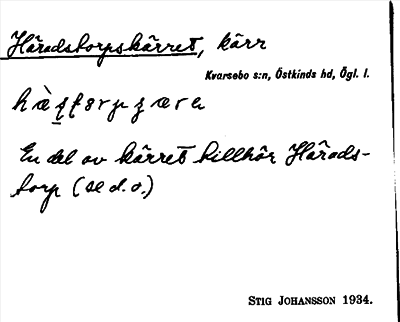 Häradstorpskärret, kärr
Kvarsebo s:n, Östkinds hd, Ögl. l.
En del av kärret tillhör Härads-
torp (se d. o.)
STIG JOHANSSON 1934.